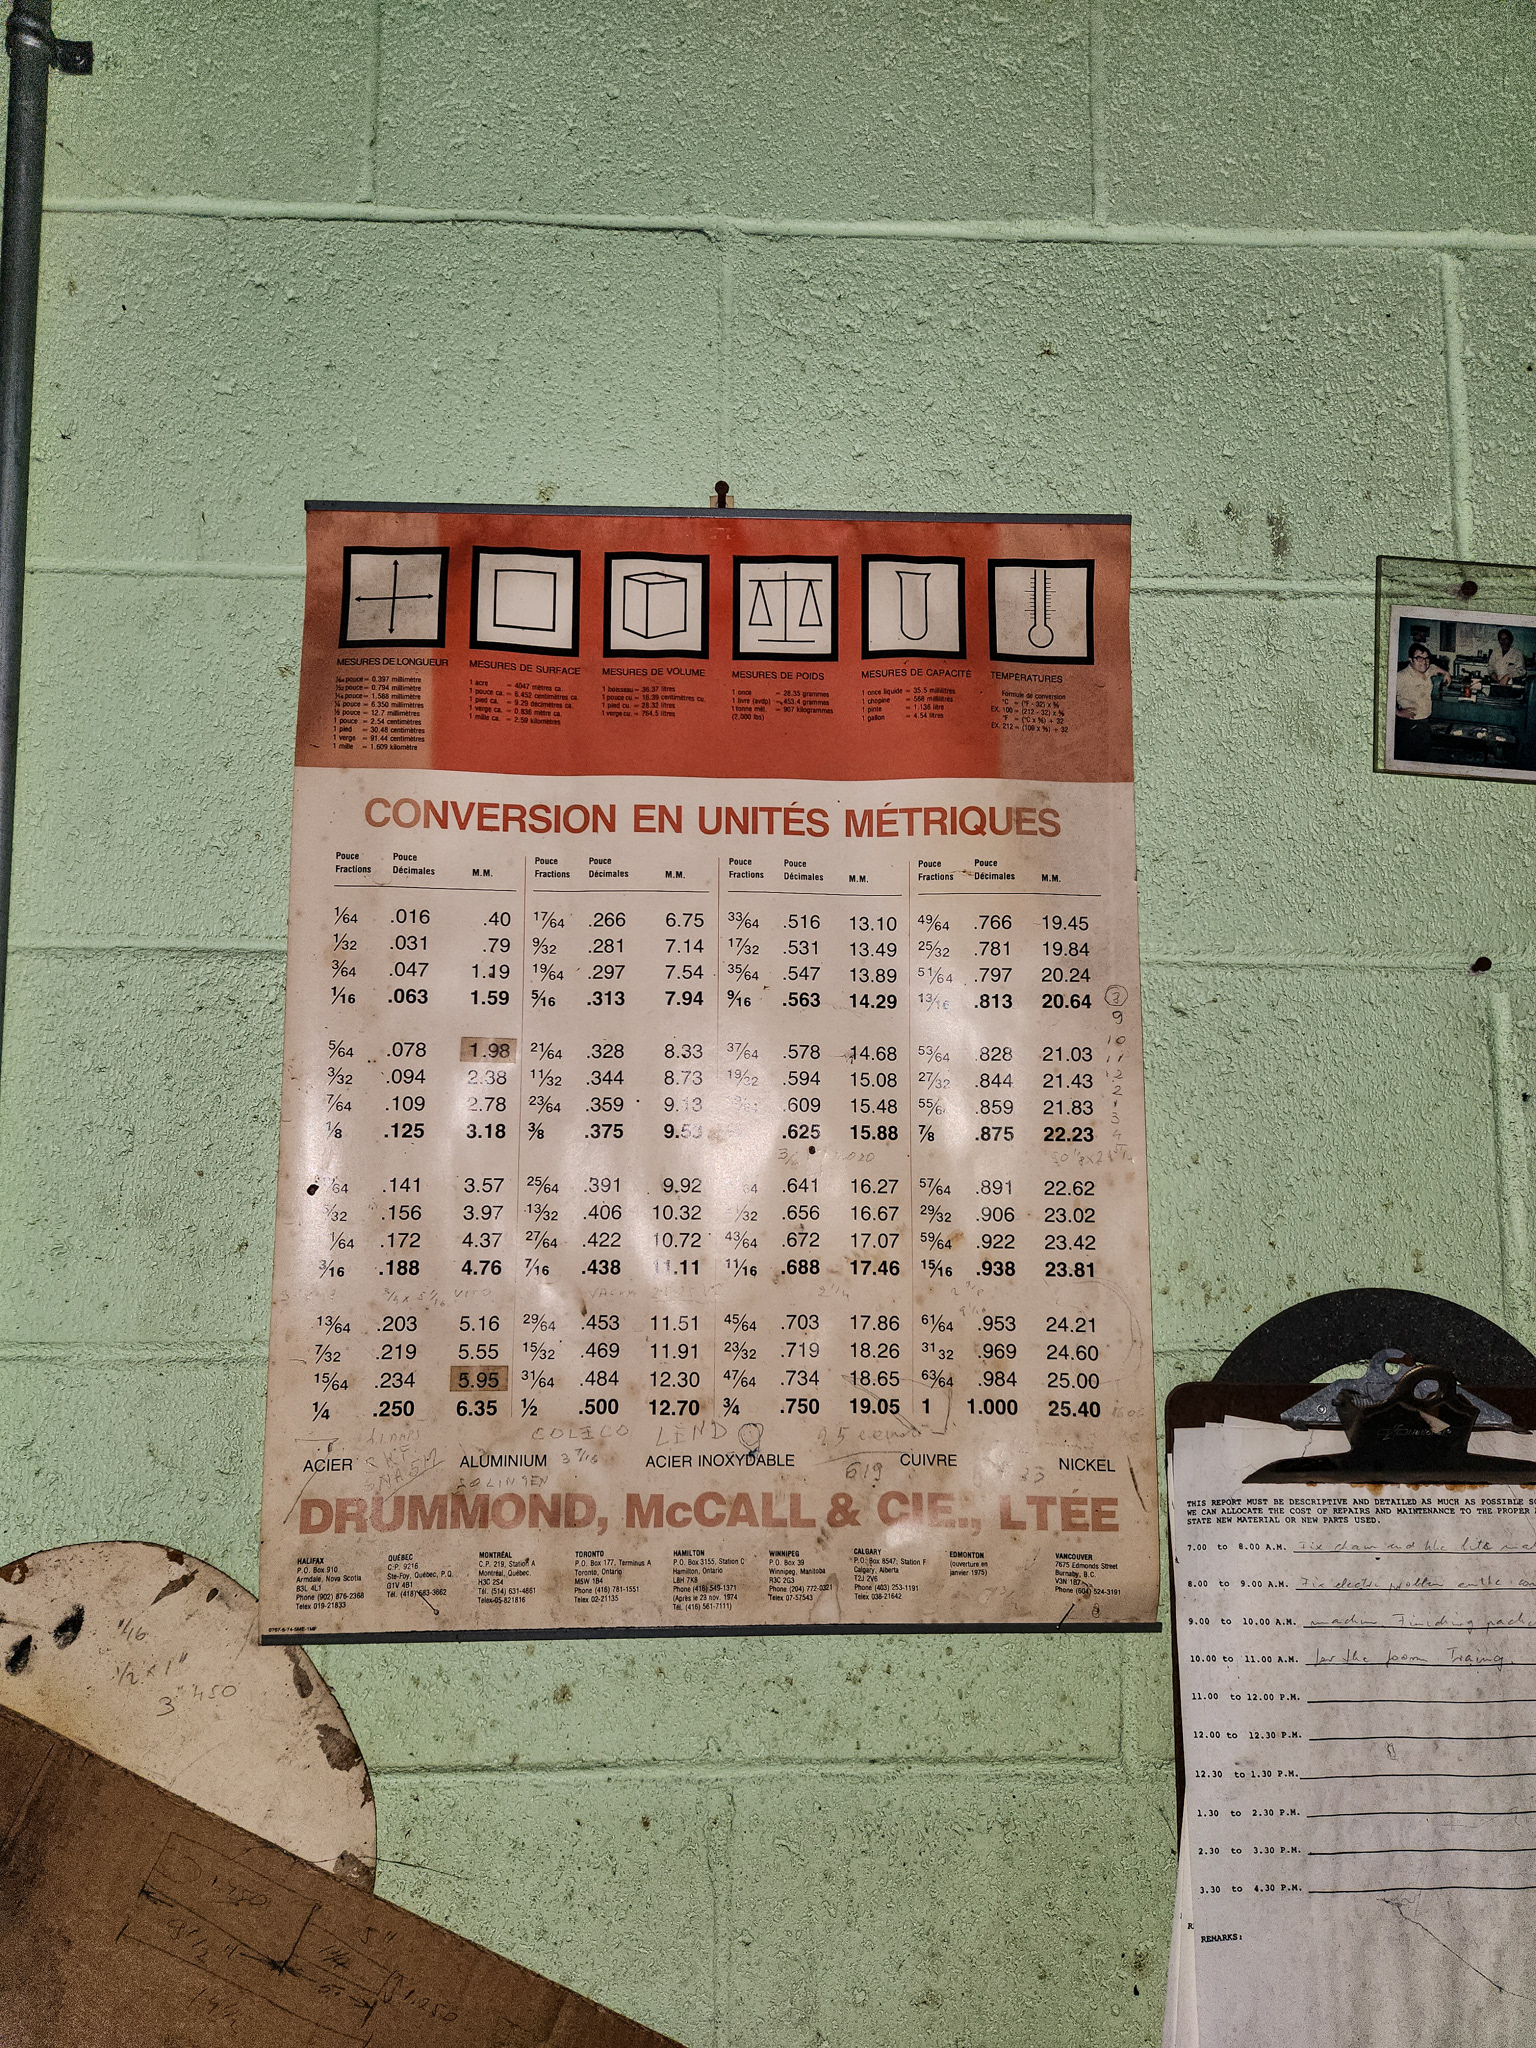 MESURES DE LONGUEUR
1/64 pouce = 0.397 millimètre
1/32 pouce = 0.794 millimètre
1/16 pouce = 1.588 millimètre
1/4 pouce = 6.350 millimètre
1/2 pouce = 12.7 millimètre
1 pouce = 2.54 centimètres
1 pied = 30.48 centimètres
1 verge = 91.44 centimètres
1 mille = 1.609 kilomètre
MESURES DE SURFACE
1 acre = 4047 mètres ca.
1 pouce ca. = 6.452 centimètres ca.
1 pied ca. = 9.29 décimètres ca.
1 verge ca. = 0.836 mètre ca.
1 mille ca. = 2.59 kilomètres
MESURES DE VOLUME
1 boisseau = 36.37 litres
1 pouce cu = 16.39 centimètres cu.
1 pied cu. = 28.32 litres
1 verge cu. = 764.5 litres
MESURES DE POIDS
1 once = 28.35 grammes
1 livre (avdp) = 453.4 grammes
1 tonne mét. = 907 kilogrammes
(2,000 lbs)
MESURES DE CAPACITÉ
1 once liquide = 35.5 millilitres
1 chopine = 568 millilitres
1 pinte = 1.136 litre
1 gallon = 4.54 litres
TEMPÉRATURES
Formule de conversion
°C = (°F - 32) x 5/9
EX. 100 = (212 - 32) x 5/9
°F = (°C x 9/5) + 32
EX. 212 = (100 x 9/5) + 32
CONVERSION EN UNITÉS MÉTRIQUES
Pouce Pouce Pouce Pouce Pouce Pouce Pouce Pouce
Fractions Décimales M.M. Fractions Décimales M.M. Fractions Décimales M.M. Fractions Décimales M.M.
1/64 .016 .40 17/64 .266 6.75 33/64 .516 13.10 49/64 .766 19.45
1/32 .031 .79 9/32 .281 7.14 17/32 .531 13.49 25/32 .781 19.84
3/64 .047 1.19 19/64 .297 7.54 35/64 .547 13.89 51/64 .797 20.24
1/16 .063 1.59 5/16 .313 7.94 9/16 .563 14.29 13/16 .813 20.64
9
10
5/64 .078 1.98 21/64 .328 8.33 37/64 .578 14.68 53/64 .828 21.03 11
3/32 .094 2.38 11/32 .344 8.73 19/32 .594 15.08 27/32 .844 21.43
2
7/64 .109 2.78 23/64 .359 9.13 .609 15.48 55/6 .859 21.83
3
1/8 .125 3.18 3/8 .375 9.53 .625 15.88 7/8 .875 22.23 4
/64 .141 3.57 25/64 .391 9.92 64 .641 16.27 57/64 .891 22.62
5/32 .156 3.97 13/32 .406 10.32 /32 .656 16.67 29/32 .906 23.02
1/64 .172 4.37 27/64 .422 10.72 43/64 .672 17.07 59/64 .922 23.42
3/16 .188 4.76 7/16 .438 11.11 11/16 .688 17.46 15/16 .938 23.81
3/4 x 5 1/16 2 1/4
13/64 .203 5.16 29/64 .453 11.51 45/64 .703 17.86 61/64 .953 24.21
7/32 .219 5.55 15/32 .469 11.91 23/32 .719 18.26 31 32 .969 24.60
15/64 .234 5.95 31/64 .484 12.30 47/64 .734 18.65 63/64 .984 25.00
1/4 .250 6.35 1/2 .500 12.70 3/4 .750 19.05 1 1.000 25.40
COLECO LIND
ACIER ALUMINIUM 3 7/16 ACIER INOXYDABLE 619 CUIVRE NICKEL
SOLINGEN
DRUMMOND, McCALL & CIE., LTÉE
HALIFAX
P.O. Box 910
Armdale, Nova Scotia
B3L 4L1
Phone (902) 876-2368
Telex 019-21833
QUÉBEC
C.P. 9216
Ste-Foy, Québec, P.Q.
G1V 4B1
Tél. (418) 683-3662
MONTRÉAL
C.P. 219, Station A
Montréal, Québec
H3C 2S4
Tél. (514) 631-4861
Telex-05-821816
TORONTO
P.O. Box 177, Terminus A
Toronto, Ontario
M5W 1B4
Phone (416) 781-1551
Telex 02-21135
HAMILTON
P.O. Box 3155, Station C
Hamilton, Ontario
L8H 7K8
Phone (416) 549-1371
(Après le 28 nov. 1974
Tél. (416) 561-7111)
WINNIPEG
P.O. Box 39
Winnipeg, Manitoba
R3C 2G3
Phone (204) 772-0321
Telex 07-57543
CALGARY
P.O. Box 8547, Station F
Calgary, Alberta
T2J 2V6
Phone (403) 253-1191
Telex 038-21642
EDMONTON
(ouverture en
janvier 1975)
VANCOUVER
7675 Edmonds Street
Burnaby, B.C.
V3N 1B7
Phone (604) 524-3191
THIS REPORT MUST BE DESCRIPTIVE AND DETAILED AS MUCH AS POSSIBLE SO
WE CAN ALLOCATE THE COST OF REPAIRS AND MAINTENANCE TO THE PROPER
STATE NEW MATERIAL OR NEW PARTS USED.
7.00 to 8.00 A.M. Fix and the
8.00 to 9.00 A.M. Fix electric problem
9.00 to 10.00 A.M. machin. Finishing
10.00 to 11.00 A.M. for the
11.00 to 12.00 P.M.
12.00 to 12.30 P.M.
12.30 to 1.30 P.M.
1.30 to 2.30 P.M.
2.30 to 3.30 P.M.
3.30 to 4.30 P.M.
REMARKS:
1/16
1/2 x 1"
3" 450
5"
9 1/2"
1.250